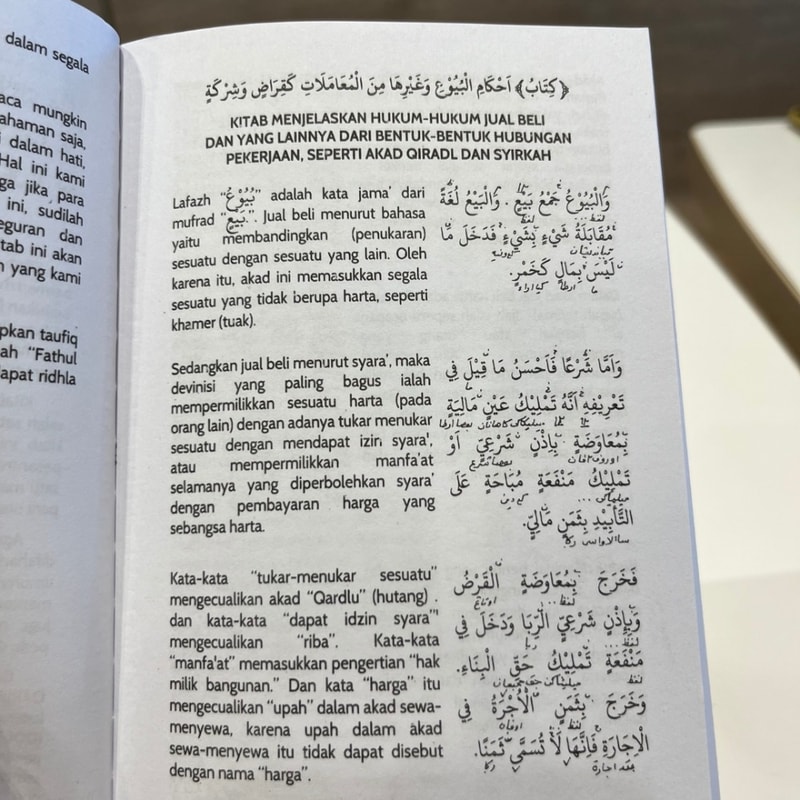 dalam segala
aca mungkin
ahaman saja,
i dalam hati,
Hal ini kami
ga jika para
ini, sudilah
eguran dan
tab ini akan
n yang kami
pkan taufiq
ah "Fathul
dapat ridhla
﴿كِتَابُ﴾ اَحْكَامِ الْبُيُوْعِ وَغَيْرِهَا مِنَ الْمُعَامَلَاتِ كَقِرَاضٍ وَشِرْكَةٍ
KITAB MENJELASKAN HUKUM-HUKUM JUAL BELI
DAN YANG LAINNYA DARI BENTUK-BENTUK HUBUNGAN
PEKERJAAN, SEPERTI AKAD QIRADL DAN SYIRKAH
Lafazh "بُيُوْعُ" adalah kata jama' dari
mufrad "بَيْعٍ.". Jual beli menurut bahasa
yaitu membandingkan (penukaran)
sesuatu dengan sesuatu yang lain. Oleh
karena itu, akad ini memasukkan segala
sesuatu yang tidak berupa harta, seperti
khamer (tuak).
وَالْبُيُوْعُ جَمْعُ بَيْعٍ. وَالْبَيْعُ لُغَةً
مُقَابَلَةُ شَيْءٍ بِشَيْءٍ فَدَخَلَ مَا
لَيْسَ بِمَالٍ كَخَمْرٍ.
Sedangkan jual beli menurut syara', maka
devinisi yang paling bagus ialah
mempermilikkan sesuatu harta (pada
orang lain) dengan adanya tukar menukar
sesuatu dengan mendapat izin syara',
atau mempermilikkan manfa'at
selamanya yang diperbolehkan syara'
dengan pembayaran harga yang
sebangsa harta.
وَاَمَّا شَرْعًا فَاَحْسَنُ مَا قِيْلَ فِي
تَعْرِيْفِهِ اَنَّهُ تَمْلِيْكُ عَيْنٍ مَالِيَةٍ
بِمُعَاوَضَةٍ بِإِذْنٍ شَرْعِيٍّ اَوْ
تَمْلِيْكُ مَنْفَعَةٍ مُبَاحَةٍ عَلَى
التَّأْبِيْدِ بِثَمَنٍ مَالِيٍّ.
Kata-kata "tukar-menukar sesuatu"
mengecualikan akad "Qardlu" (hutang) .
dan kata-kata "dapat idzin syara"'
mengecualikan "riba". Kata-kata
"manfa'at" memasukkan pengertian "hak
milik bangunan." Dan kata "harga" itu
mengecualikan "upah" dalam akad sewa-
menyewa, karena upah dalam akad
sewa-menyewa itu tidak dapat disebut
dengan nama "harga".
فَخَرَجَ بِمُعَاوَضَةٍ الْقَرْضُ
وَبِإِذْنٍ شَرْعِيٍّ الرِّبَا وَدَخَلَ فِي
مَنْفَعَةٍ تَمْلِيْكُ حَقِّ الْبِنَاءِ.
وَخَرَجَ بِثَمَنٍ الْاُجْرَةُ فِي
الْاِجَارَةِ فَاِنَّهَا لَا تُسَمَّى ثَمَنًا.